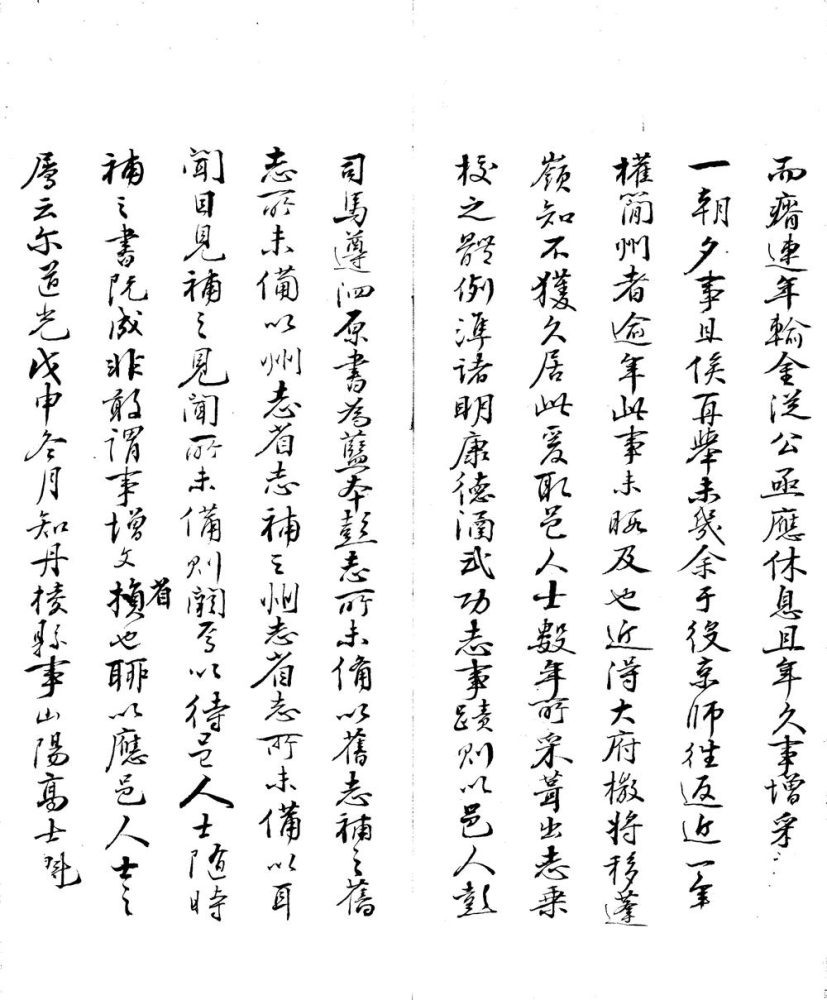 而瘠連年輸金從公亟應休息且年久事增采
一朝夕事且俟再舉未幾余于役京師往返近一年
權簡州者逾年此事未暇及也近得大府檄將移蓬
嶺知不獲久居此爰取邑人士數年所采葺出志乘
校之體例準諸明康德涵武功志事蹟則以邑人彭
司馬遵泗原書為藍本彭志所未備以舊志補之舊
志所未備以州志省志補之州志省志所未備以耳
聞目見補之見聞所未備則闕焉以待邑人士隨時
補之書既成非敢謂事增文損省也聊以應邑人士之
屬云尔道光戊申冬月知丹棱縣事山陽高士